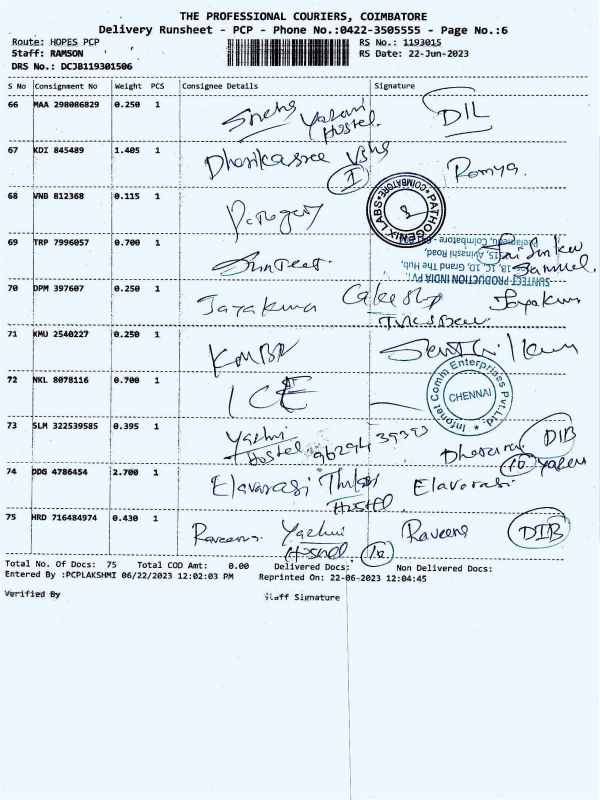 THE PROFESSIONAL COURIERS, COIMBATORE
Delivery Runsheet - PCP - Phone No.:0422-3505555 - Page No.:6
Route: HOPES PCP RS No.: 1193015
Staff: RAMSON RS Date: 22-Jun-2023
DRS No.: DCJB119301506
S No Consignment No Weight PCS Consignee Details Signature
66 MAA 298086829 0.250 1 Hostel. DIL
67 KDI 845489 1.405 1 Dharikasree I Ramya.
68 VNB 812368 0.115 1
PATHOGENIX LABS COIMBATORE
69 TRP 7996057 0.700 1 Suntect. Samuel
SUNTECT PRODUCTION INDIA PVT
1B, 1C, 1D, Grand The Hub,
Avinashi Road,
Peelamedu, Coimbatore
70 DPM 397607 0.250 1 Jayakumar Cake Shop
71 KMU 2540227 0.250 1 KMBR
72 NKL 8078116 0.700 1 ICE
Infonet Comm Enterprises Pvt.Ltd. CHENNAI
73 SLM 322539585 0.395 1 Yazhni Hostel 9629439393 DIB
74 DDG 4786454 2.700 1 Elavarasi Hostel Elavarasi
75 HRD 716484974 0.430 1 Raveena. Yazhni Hostel Raveena DIB
Total No. Of Docs: 75 Total COD Amt: 0.00 Delivered Docs: Non Delivered Docs:
Entered By :PCPLAKSHMI 06/22/2023 12:02:03 PM Reprinted On: 22-06-2023 12:04:45
Verified By Staff Signature